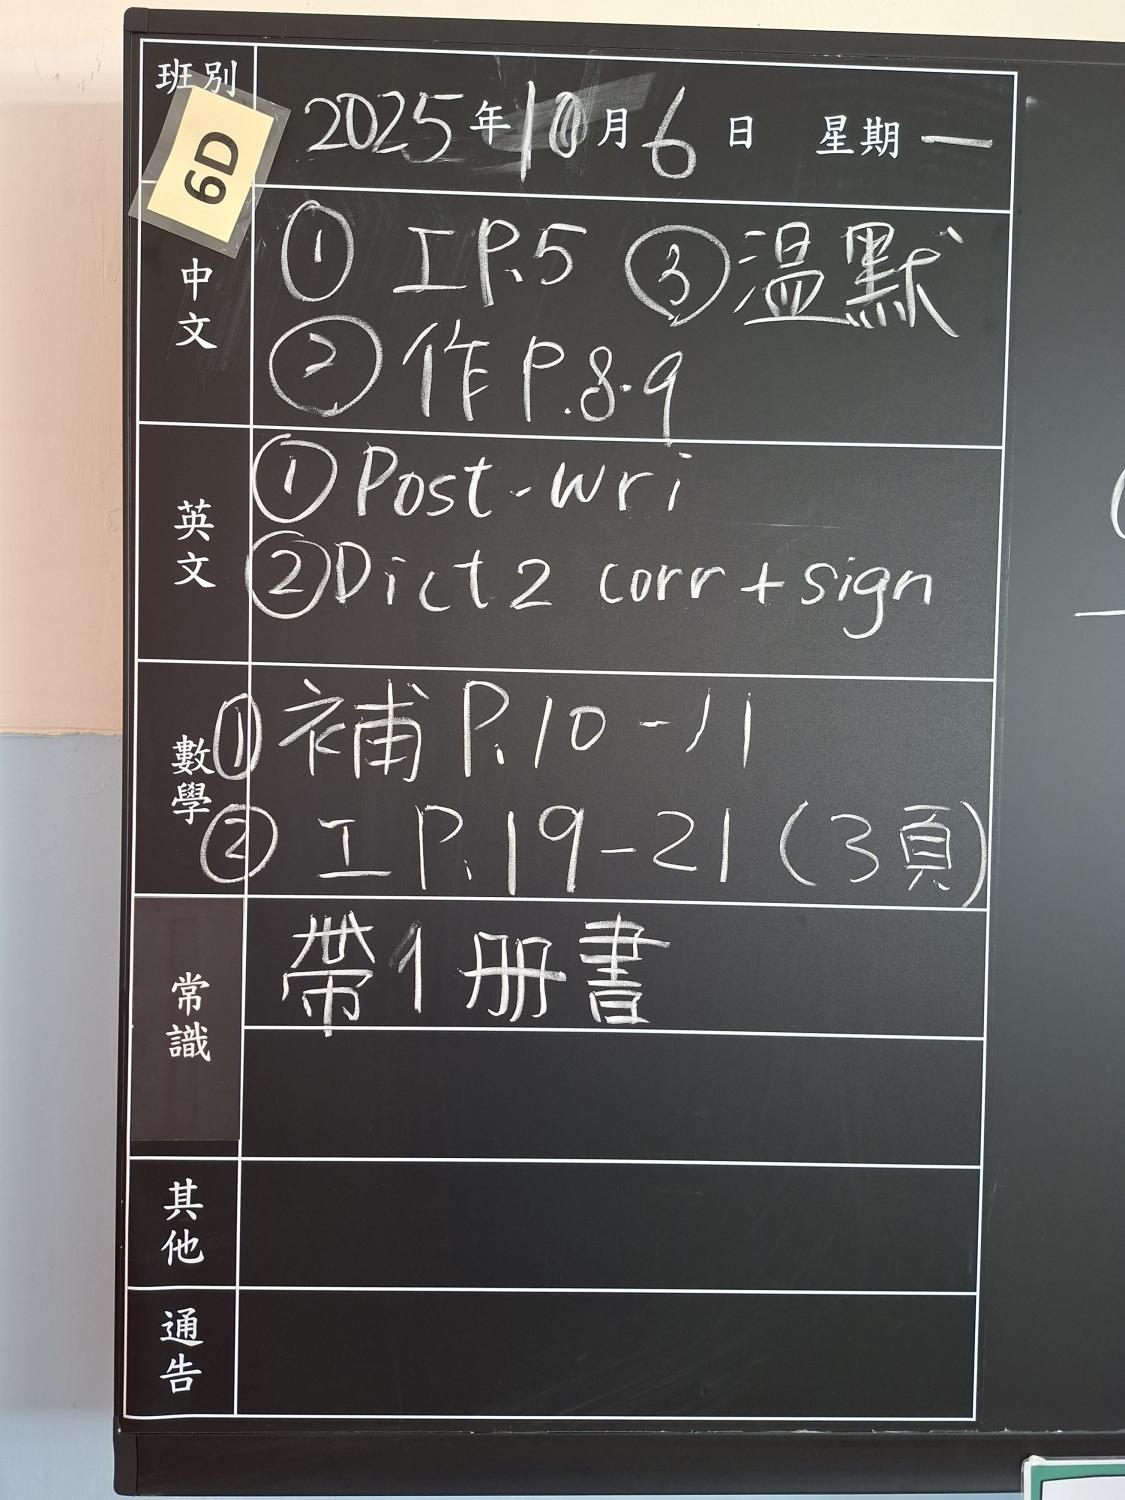 班別
6D
2025年10月6日 星期一
中文
① 工P.5 ③温默
② 作P.8-9
英文
① Post-wri
② Dict 2 corr + sign
數學
① 補 P.10-11
② 工 P.19-21 (3頁)
常識
帶1册書
其他
通告